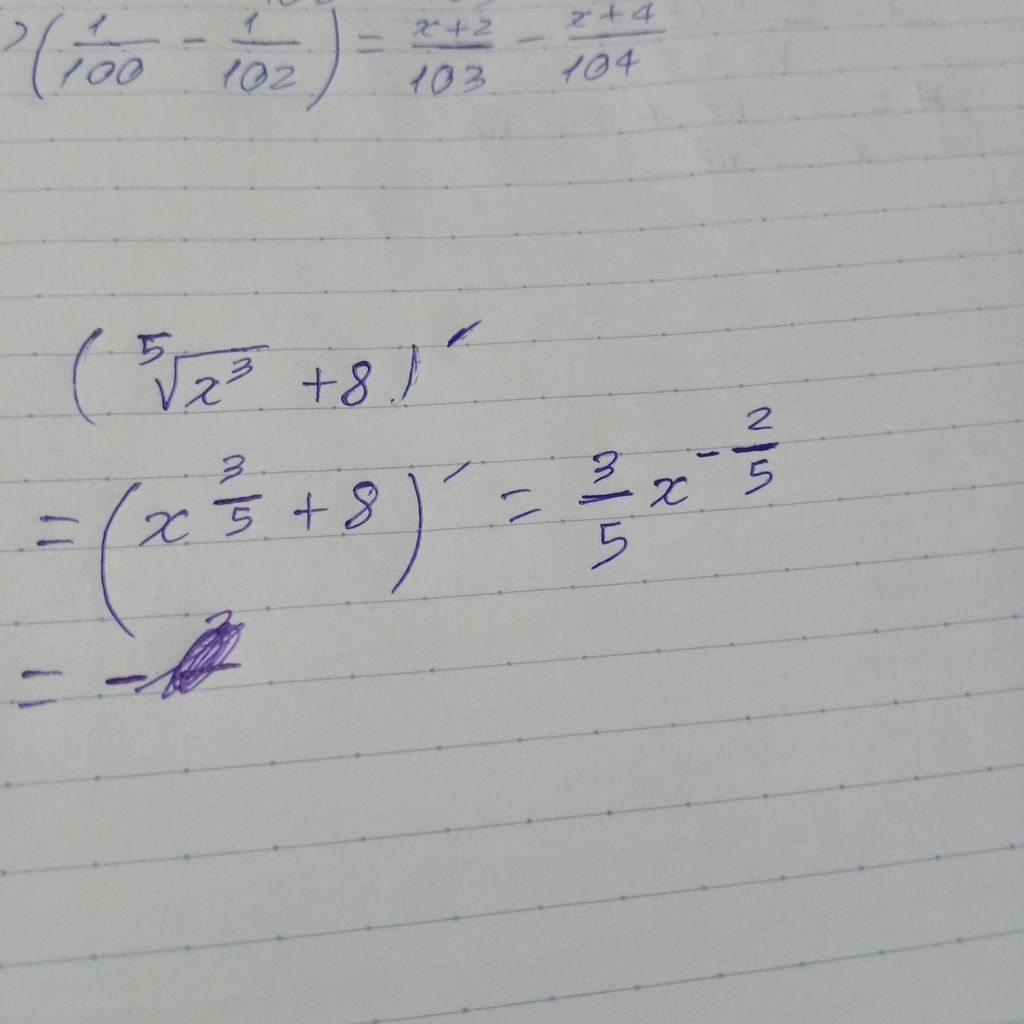 )(1/100 - 1/102) = x+2/103 - x+4/104
(⁵√x³ + 8)′
= (x^3/5 + 8)′ = 3/5 x^-2/5
= -